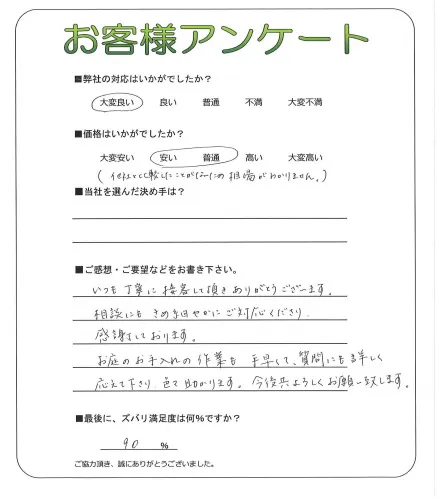 お客様アンケート
■弊社の対応はいかがでしたか?
大変良い 良い 普通 不満 大変不満
■価格はいかがでしたか?
大変安い 安い 普通 高い 大変高い
(他社と比較したことがないため相場がわかりません。)
■当社を選んだ決め手は?
■ご感想・ご要望などをお書き下さい。
いつも丁寧に接客して頂きありがとうございます。
相談にもきめ細やかにご対応くださり
感謝しております。
お庭のお手入れの作業も手早くて、質問にも詳しく
応えて下さり 助かります。今後共よろしくお願い致します。
■最後に、ズバリ満足度は何%ですか?
90 %
ご協力頂き、誠にありがとうございました。